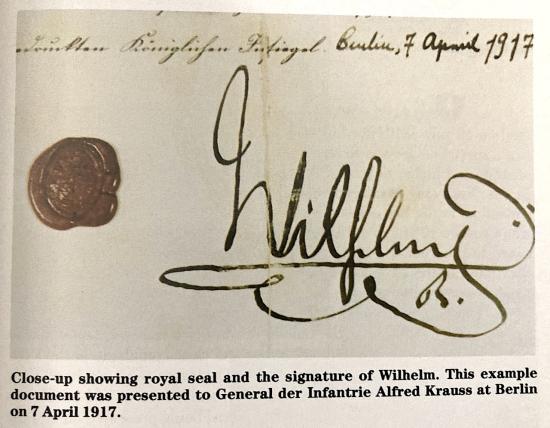 edruckten Königlichen Insiegel. Berlin, 7 April 1917
Wilhelm
R.
Close-up showing royal seal and the signature of Wilhelm. This example
document was presented to General der Infantrie Alfred Krauss at Berlin
on 7 April 1917.